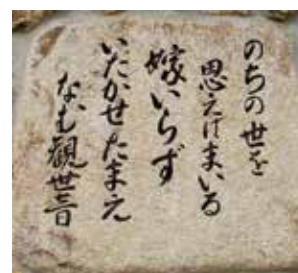 のちの世を
思えばまいる
嫁いらず
いたかせたまえ
なむ観世音